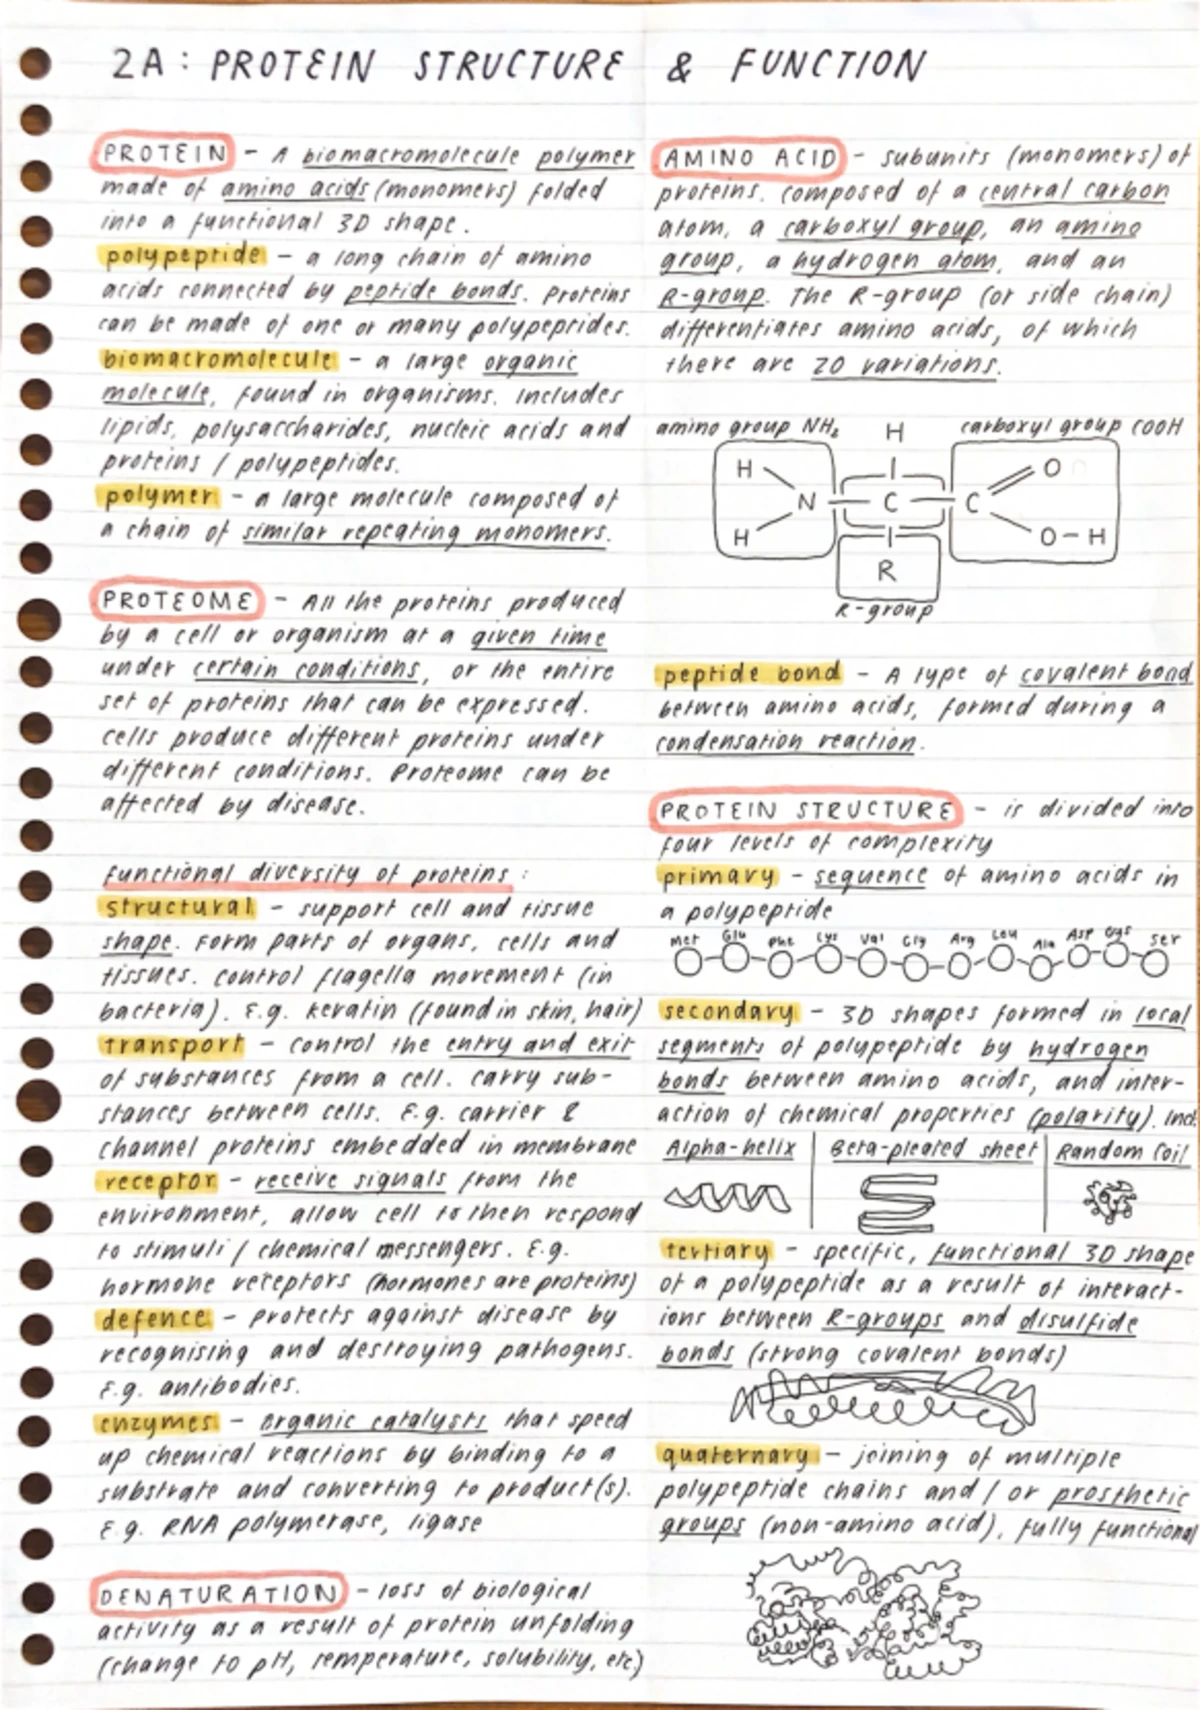 2A: PROTEIN STRUCTURE & FUNCTION
PROTEIN - A biomacromolecule polymer
made of amino acids (monomers) folded
into a functional 3D shape.
polypeptide - a long chain of amino
acids connected by peptide bonds. Proteins
can be made of one or many polypeptides.
biomacromolecule - a large organic
molecule, found in organisms. Includes
lipids, polysaccharides, nucleic acids and
proteins / polypeptides.
polymer - a large molecule composed of
a chain of similar repeating monomers.
PROTEOME - All the proteins produced
by a cell or organism at a given time
under certain conditions, or the entire
set of proteins that can be expressed.
Cells produce different proteins under
different conditions. Proteome can be
affected by disease.
Functional diversity of proteins:
structural - support cell and tissue
shape. Form parts of organs, cells and
tissues. Control flagella movement (in
bacteria). E.g. keratin (found in skin, hair)
transport - control the entry and exit
of substances from a cell. Carry sub-
stances between cells. E.g. carrier &
channel proteins embedded in membrane
receptor - receive signals from the
environment, allow cell to then respond
to stimuli / chemical messengers. E.g.
hormone receptors (hormones are proteins)
defence - Protects against disease by
recognising and destroying pathogens.
E.g. antibodies.
enzymes - organic catalysts that speed
up chemical reactions by binding to a
substrate and converting to product(s).
E.g. RNA polymerase, ligase
DENATURATION - loss of biological
activity as a result of protein unfolding
(change to pH, temperature, solubility, etc)
AMINO ACID - subunits (monomers) of
proteins. Composed of a central carbon
atom, a carboxyl group, an amino
group, a hydrogen atom, and an
R-group. The R-group (or side chain)
differentiates amino acids, of which
there are 20 variations.
amino group NH₂ H carboxyl group COOH
H O
N C C
H O-H
R
R-group
peptide bond - A type of covalent bond
between amino acids, formed during a
condensation reaction.
PROTEIN STRUCTURE - is divided into
four levels of complexity
primary - sequence of amino acids in
a polypeptide
Met Glu Phe Cys Val Gly Arg Leu Ala Asp Cys Ser
secondary - 3D shapes formed in local
segments of polypeptide by hydrogen
bonds between amino acids, and inter-
action of chemical properties (polarity). Incl.
Alpha-helix Beta-pleated sheet Random Coil
tertiary - specific, functional 3D shape
of a polypeptide as a result of interact-
ions between R-groups and disulfide
bonds (strong covalent bonds)
quaternary - joining of multiple
polypeptide chains and / or prosthetic
groups (non-amino acid), fully functional